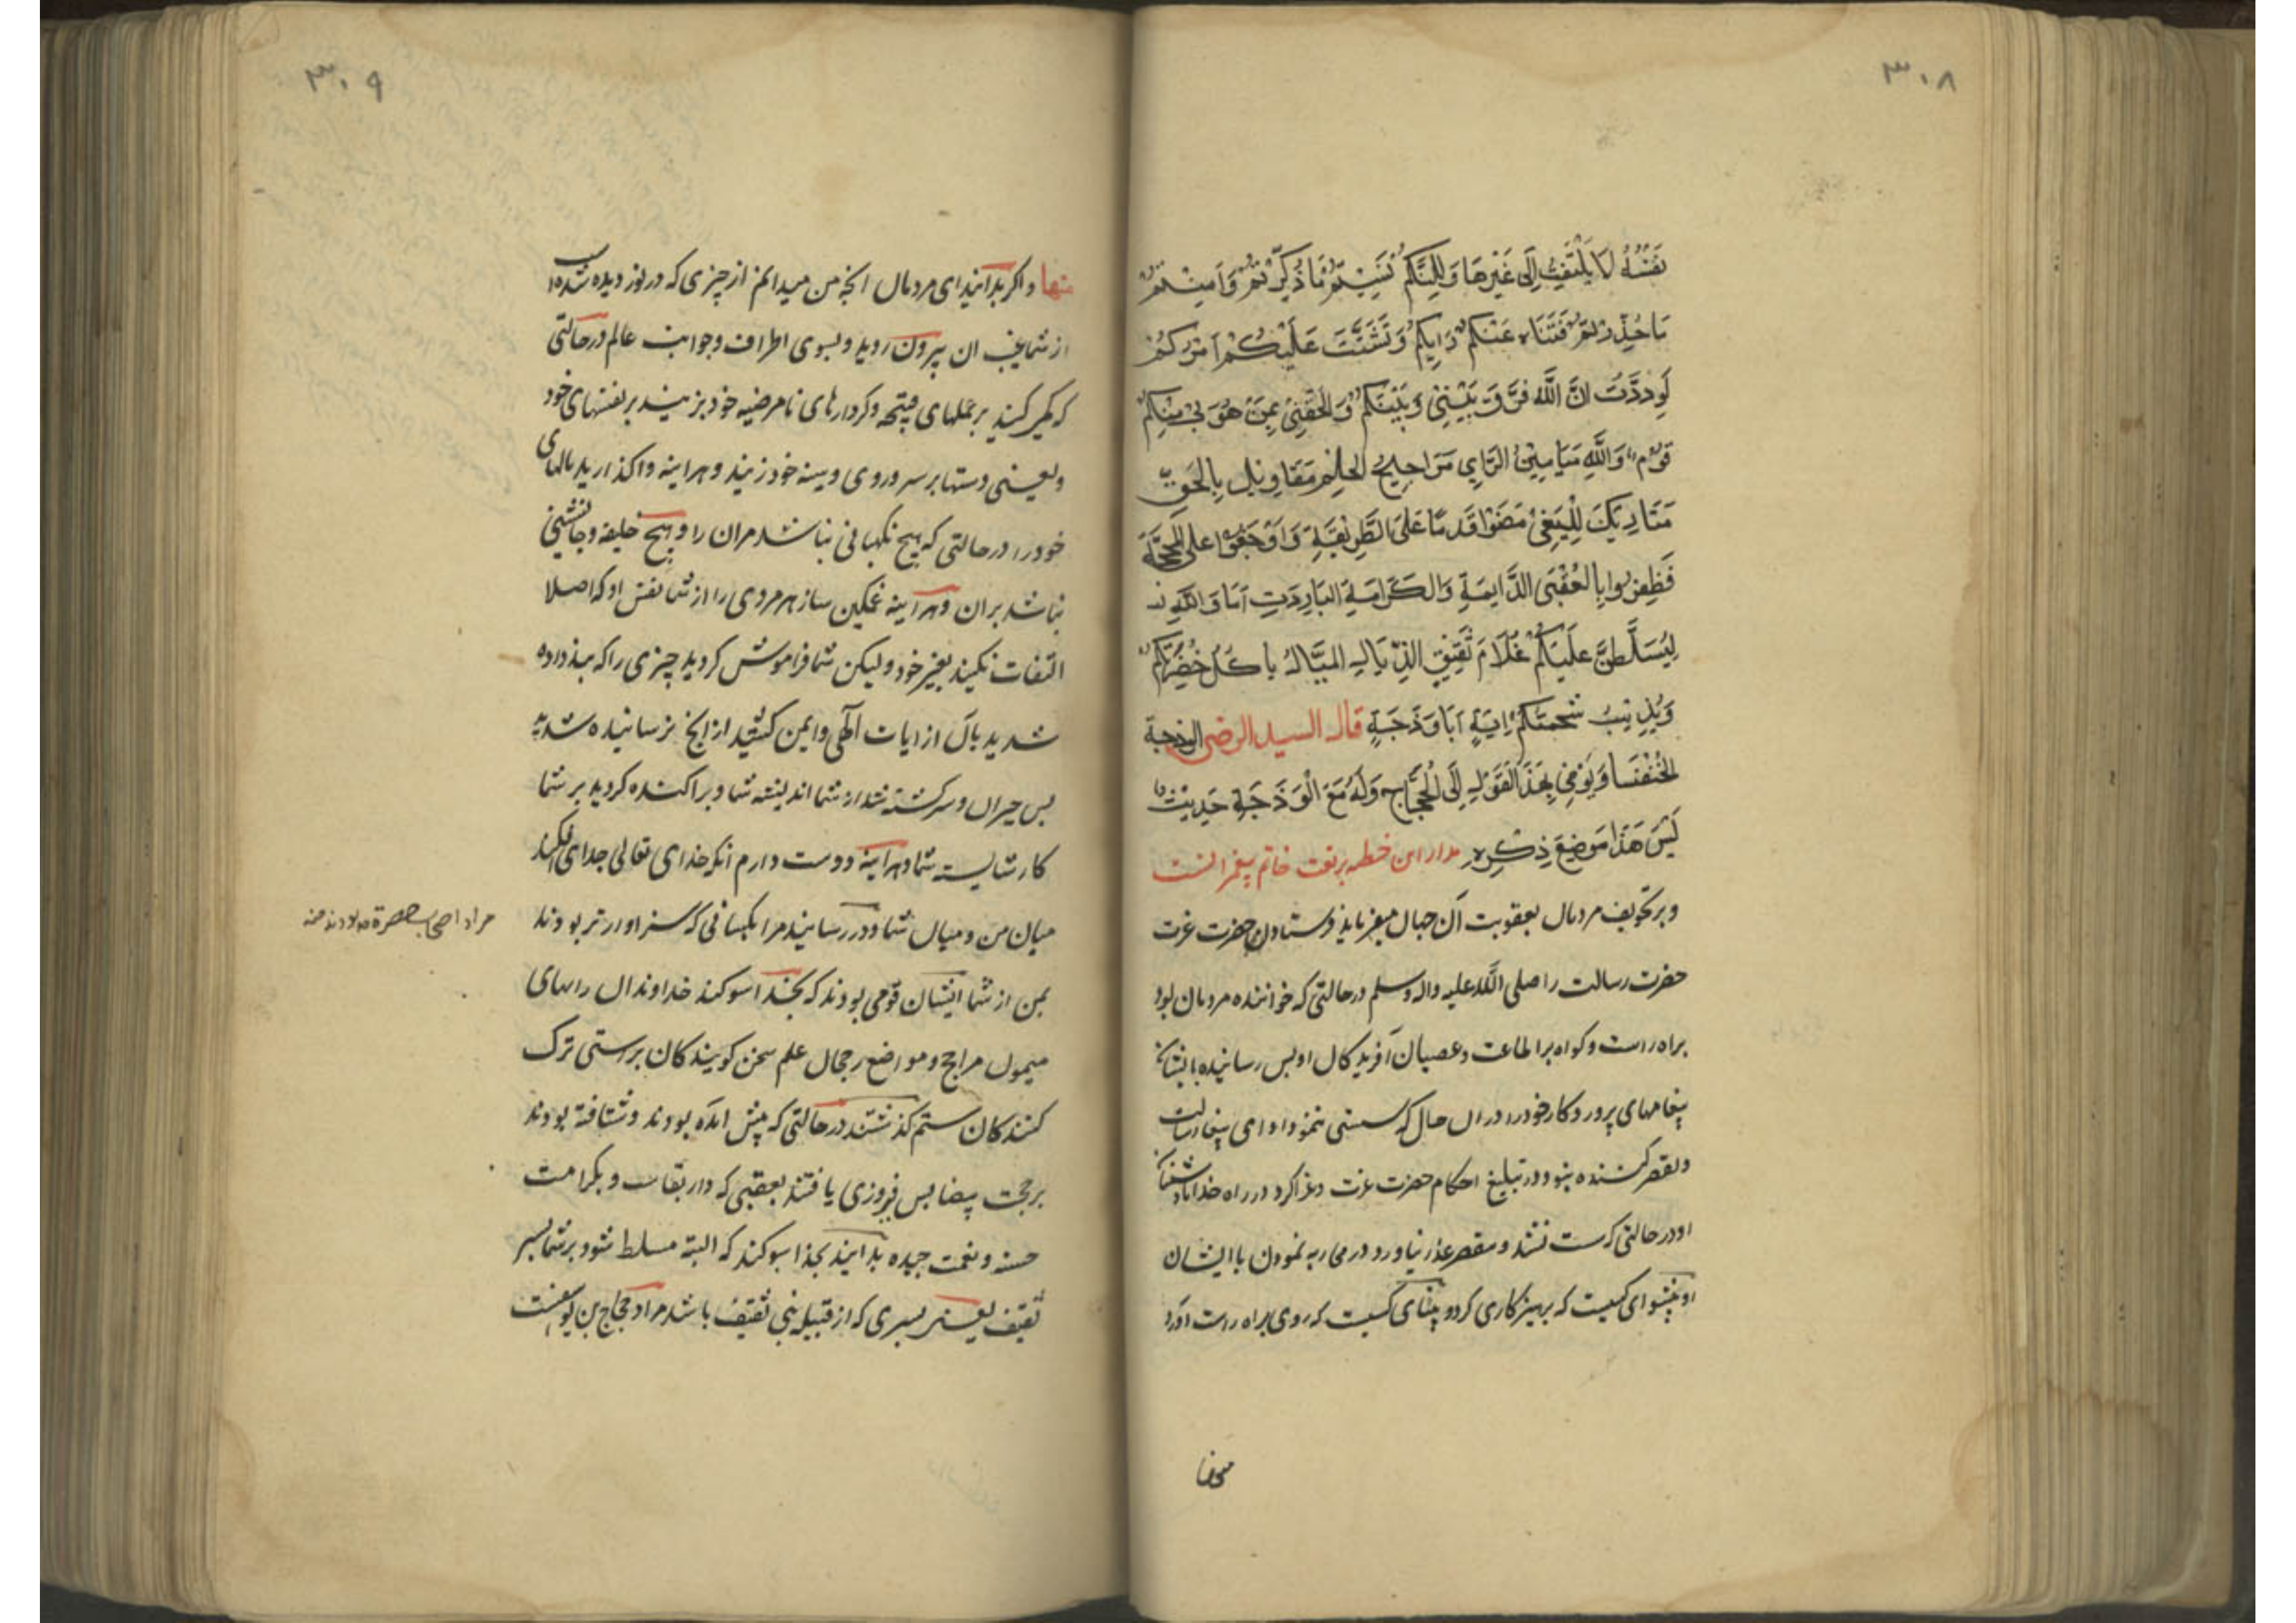 ۳۰۸
نَفْسُهُ لَا يَلْتَفِتُ اِلَى غَيْرِهَا وَلٰكِنَّكُمْ نَسِيْتُمْ مَا ذُكِّرْتُمْ وَاَمِنْتُمْ
مَا حُذِّرْتُمْ فَتَاهَ عَنْكُمْ رَايُكُمْ وَتَشَتَّتَ عَلَيْكُمْ اَمْرُكُمْ
لَوَدِدْتُ اَنَّ اللّٰهَ فَرَّقَ بَيْنِيْ وَبَيْنَكُمْ وَاَلْحَقَنِيْ بِمَنْ هُوَ بِيْ مِنْكُمْ
قَوْمٌ وَاللّٰهِ مَيَامِيْنُ الرَّايِ مَرَاجِيْحُ الحِلْمِ مَقَاوِيْلُ بِالْحَقِّ
مَتَارِيْكُ لِلْبَغْيِ مَضَوْا قَدَمًا عَلَى الطَّرِيْقَةِ وَاَوْجَفُوْا عَلَى المَحَجَّةِ
فَظَفِرُوا بِالْعُقْبَى الدَّايِمَةِ وَالكَرَامَةِ البَارِدَةِ اَمَا وَاللّٰهِ
لَيُسَلَّطَنَّ عَلَيْكُمْ غُلَامُ ثَقِيْفٍ الذَّيَّالُ المَيَّالُ يَاكُلُ خَضِرَتَكُمْ
وَيُذِيْبُ شَحْمَتَكُمْ اِيَهٍ اَبَا وَذَحَةٍ قال السيد الرضى الوذحة
الخُنْفَسَا وَيُوْمِي بِهَذَا القَوْلِ اِلَى الْحَجَّاجِ وَلَهُ مَعَ الْوَذَحَةِ حَدِيْثٌ
لَيْسَ هَذَا مَوْضِعَ ذِكْرِهِ مدار این خطبه بر نعت خاتم پیغمبرانست
وبر تخویف مردمان بعقوبت آن جهان میفرماید فرستاد حضرت عزت
حضرت رسالت را صلی الله علیه واله وسلم درحالتی که خواننده مردمان بود
براه راست وکواه بر اطاعت وعصیان آفریدکان او پس رسانیده بایشان
پیغامهای پروردکار خود را در ان حال که سستی ننمود در ادای پیغام رسالت
وتقصیر کننده نبود در تبلیغ احکام حضرت عزت وغزا کرد در راه خدا با دشمنان
او درحالتی که سست نشد ومقصر عذر نیاورد در محاربه نمودن با ایشان
او پیشوای کسیست که پرهیزکاری کرد و بینائی کسیست که روی براه راست آورد
منها
۳۰۹
منها و اکر بدانید ای مردمان انچه من میدانم از چیزی که در نور دیده شده است
از شما غیب ان بیرون روید وبسوی اطراف وجوانب عالم درحالتی
که کریه کنید بر عملهای قبیحه وکردارهای نامرضیه خود بزنید بر نفسهای خود
ولعینی دستها بر سر وروی وسینه خود زنید وهراینه واکذارید مالهای
خود را درحالتی که هیچ نکهبانی نباشد مر ان را وهیچ خلیفه وجانشینی
نباشد بر ان وهراینه غمکین سازد هر مردی را از شما نفس او که اصلا
التفات نکنید بغیر خود ولیکن شما فراموش کردید چیزی را که پند داده
شدید بآن از ایات الهی وایمن کشتید از انچه ترسانیده شدید
پس حیران وسرکشته شد از شما اندیشه شما وپراکنده کردید بر شما
کار شایسته شما وهراینه دوست دارم انکه خدای تعالی جدایی افکند
میان من ومیان شما ودر رساند مرا بکسانی که سزاوارتر بودند
مراد اصحاب حضرة بودند منه
بمن از شما ایشان قومی بودند که بخدا سوکند خداوندان رایهای
میمون مراجح ومواضع رجحان علم سخن کویندکان براستی ترک
کنندکان ستم کذشتند درحالتی که پیش امده بودند وشتافته بودند
بر حجت بیضا پس فیروزی یافتند بعقبی که دار بقاست وبکرامت
حسنه ونعمت جیده بدانید بخدا سوکند که البته مسلط شود بر شما پسر
ثقیف یعنی پسری که از قبیله بنی ثقیف باشد مراد حجاج بن یوسفست